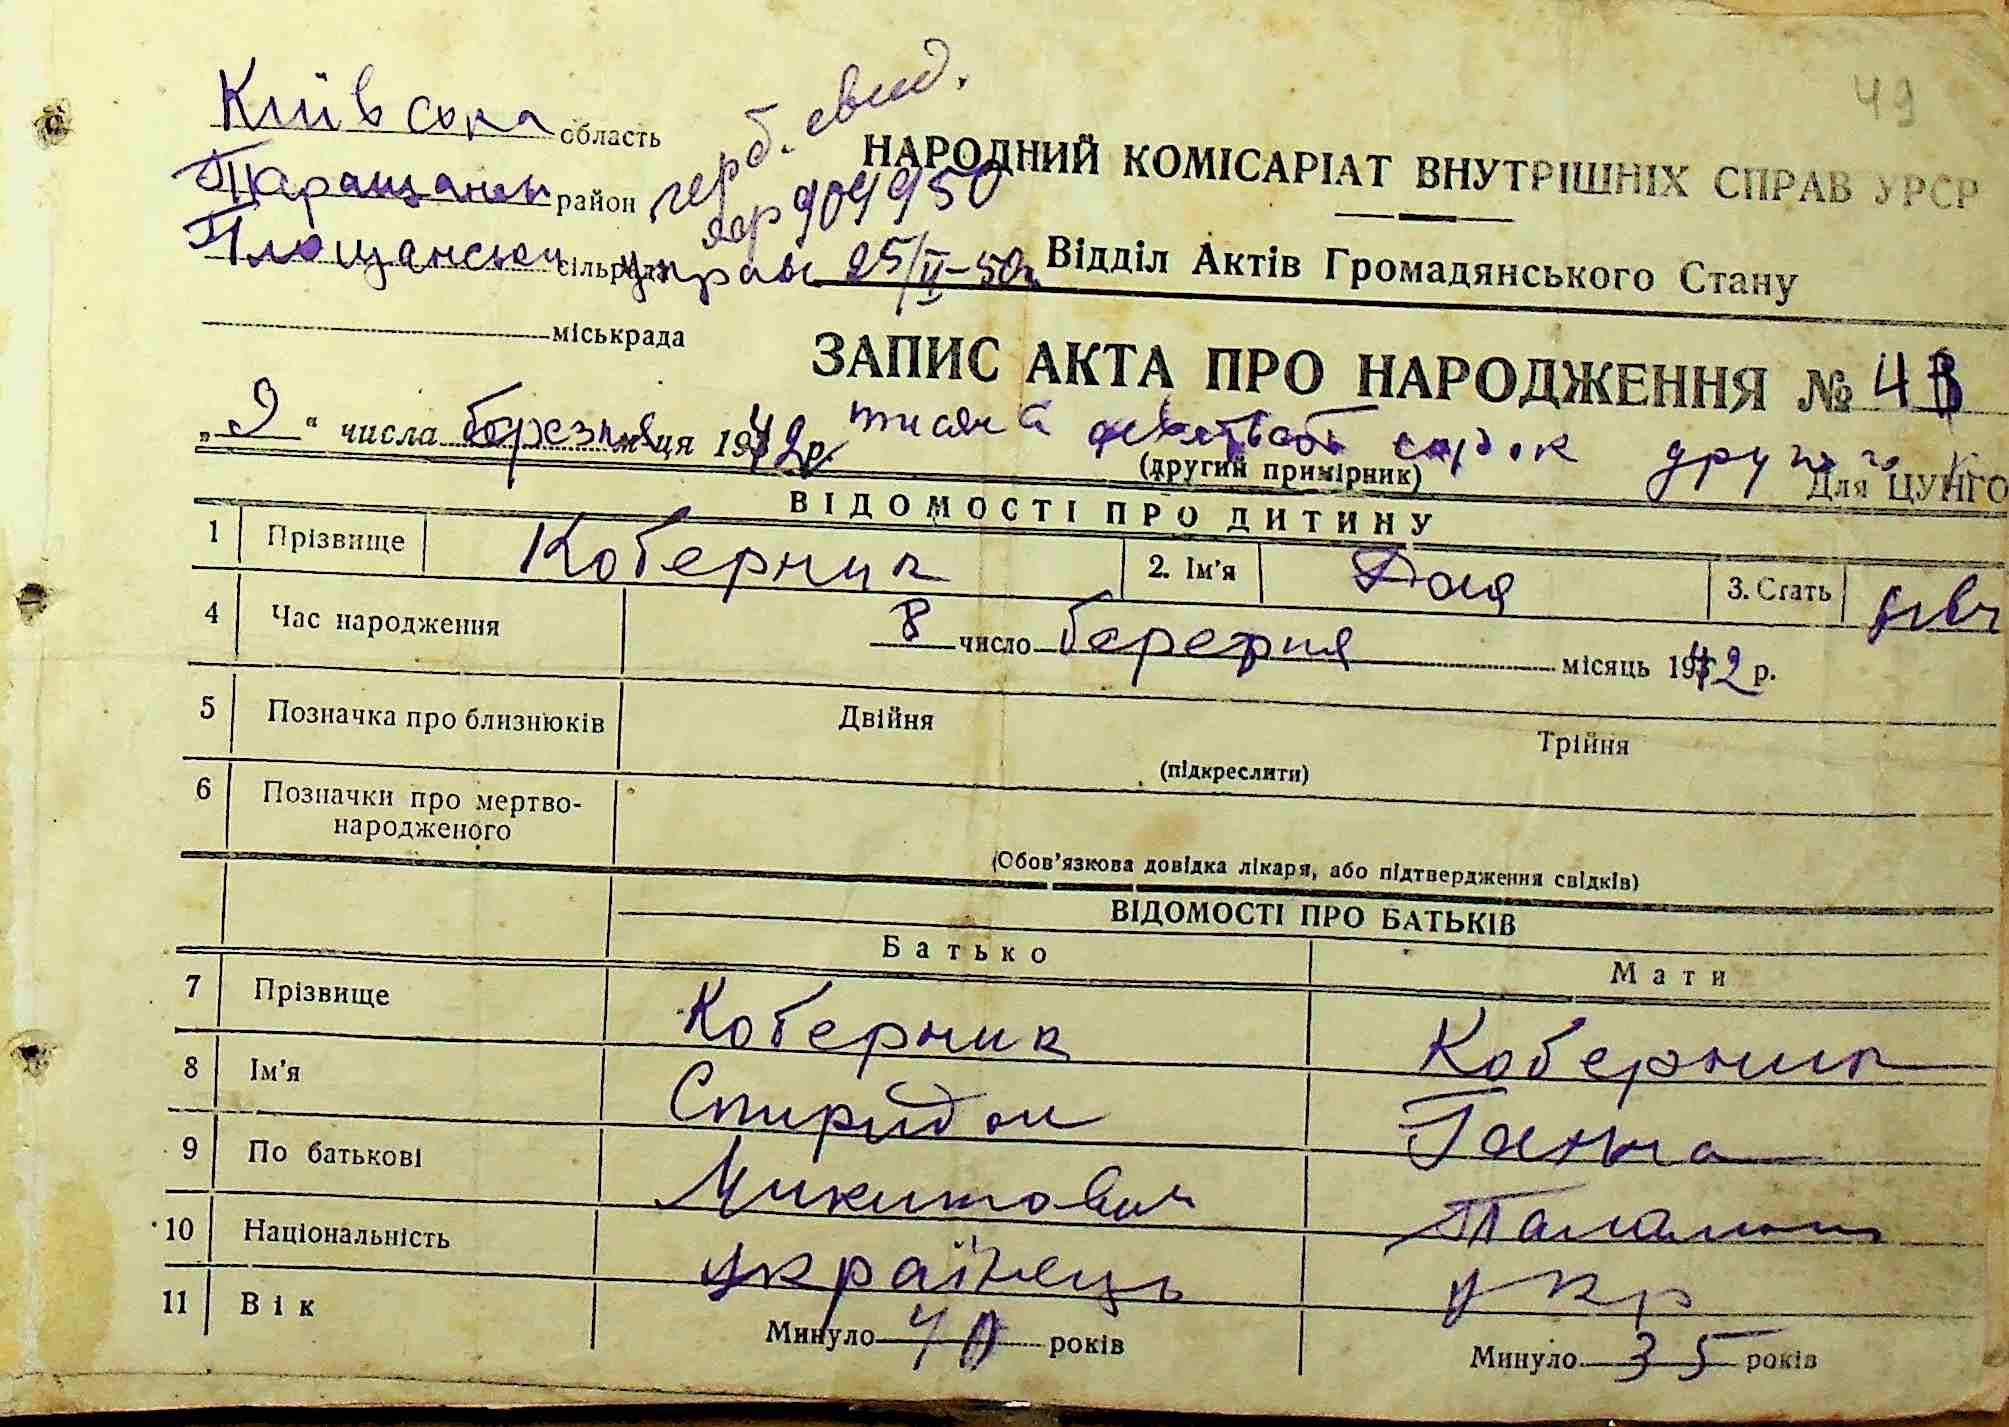 49
Київська область
герб. свид.
НАРОДНИЙ КОМІСАРІАТ ВНУТРІШНІХ СПРАВ УРСР
Таращанськ район
904950
Площанська сільрада
25/II-50р
Відділ Актів Громадянського Стану
міськрада
ЗАПИС АКТА ПРО НАРОДЖЕННЯ № 43
„9“ числа березня м-ця 1942р. тисяча девятьсот сорок другого
(другий примірник) Для ЦУНГО
ВІДОМОСТІ ПРО ДИТИНУ
1 Прізвище Коберник 2. Ім'я 3. Стать дівч
4 Час народження 8 число березня місяць 1942 р.
5 Позначка про близнюків Двійня Трійня
(підкреслити)
6 Позначки про мертво-
народженого
(Обов'язкова довідка лікаря, або підтвердження свідків)
ВІДОМОСТІ ПРО БАТЬКІВ
Батько Мати
7 Прізвище Коберник Коберник
8 Ім'я Спиридон Ганна
9 По батькові Микитович
10 Національність українець укр
11 Вік Минуло 40 років Минуло 35 років